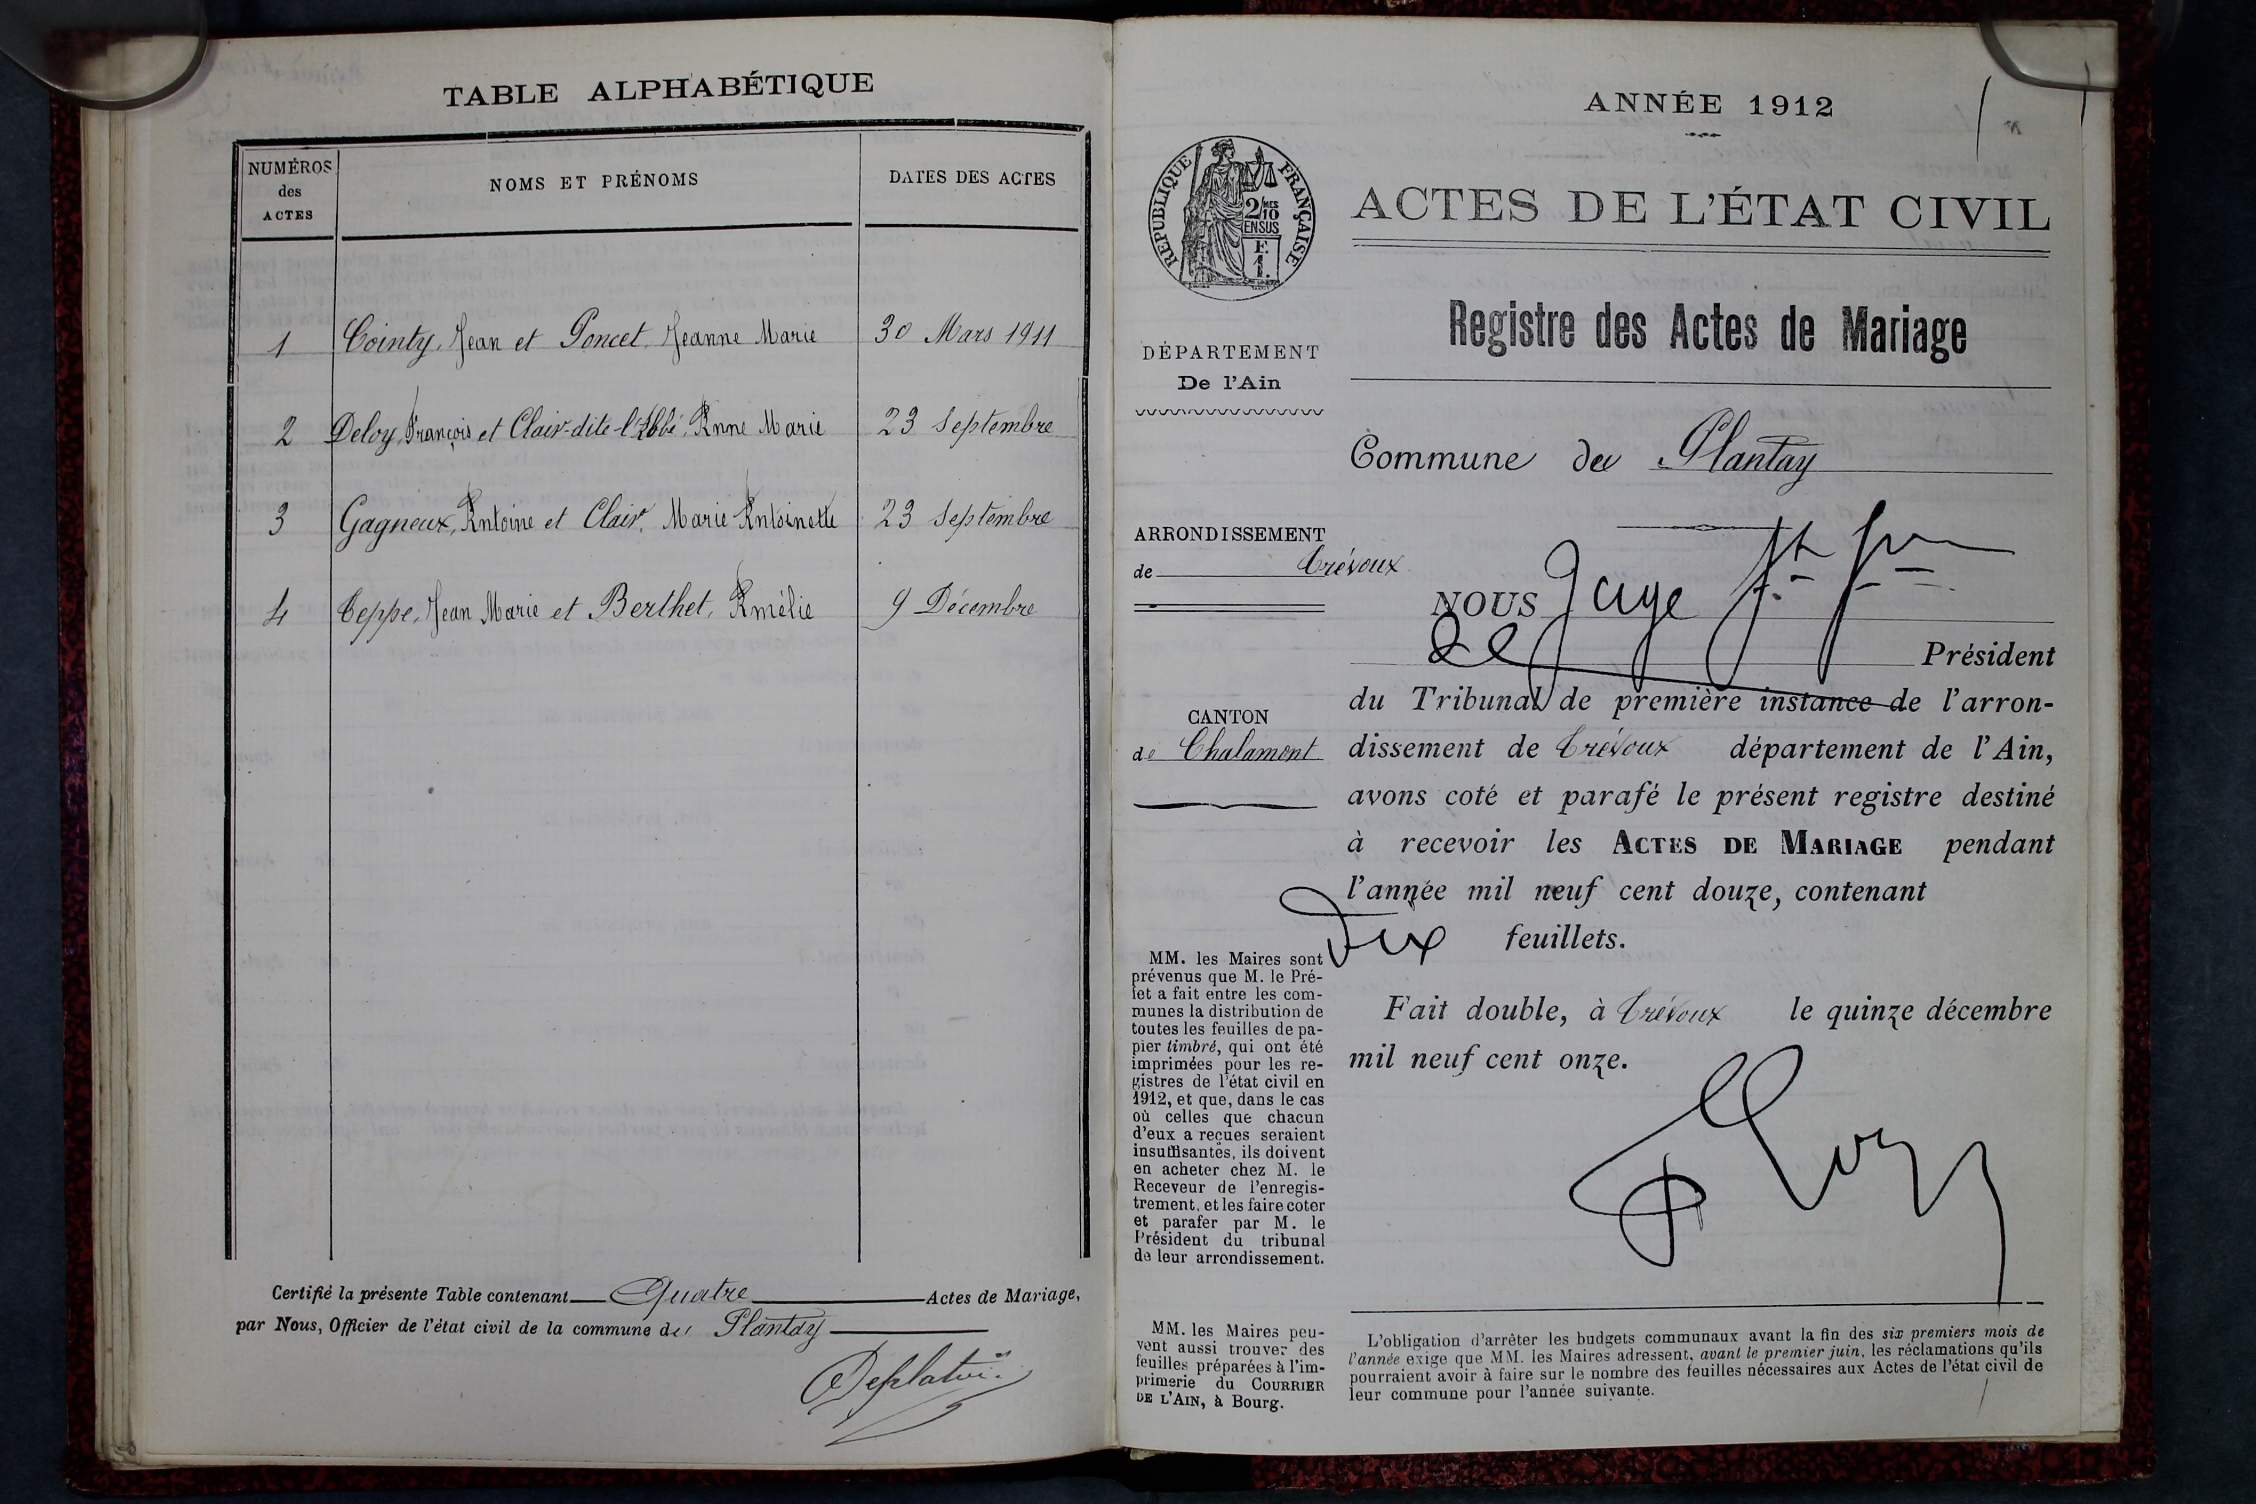 TABLE ALPHABÉTIQUE
NUMÉROS
des
ACTES
NOMS ET PRÉNOMS
DATES DES ACTES
1 Cointy, Jean et Poncet, Jeanne Marie 30 Mars 1911
2 Deloy, François et Clair-dite-l'Abbé, Anne Marie 23 Septembre
3 Gagneux, Antoine et Clair, Marie Antoinette 23 Septembre
4 Teppe, Jean Marie et Berthet, Amélie 9 Décembre
Certifié la présente Table contenant Quatre Actes de Mariage,
par Nous, Officier de l'état civil de la commune du Plantay
ANNÉE 1912
RÉPUBLIQUE FRANÇAISE
2/10
EN SUS
F.
1.
ACTES DE L'ÉTAT CIVIL
Registre des Actes de Mariage
DÉPARTEMENT
De l'Ain
Commune du Plantay
ARRONDISSEMENT
de Trévoux
NOUS Juge
Président
du Tribunal de première instance de l'arron-
CANTON
de Chalamont
dissement de Trévoux département de l'Ain,
avons coté et parafé le présent registre destiné
à recevoir les ACTES DE MARIAGE pendant
l'année mil neuf cent douze, contenant
Dix feuillets.
Fait double, à Trévoux le quinze décembre
mil neuf cent onze.
MM. les Maires sont
prévenus que M. le Pré-
fet a fait entre les com-
munes la distribution de
toutes les feuilles de pa-
pier timbré, qui ont été
imprimées pour les re-
gistres de l'état civil en
1912, et que, dans le cas
où celles que chacun
d'eux a reçues seraient
insuffisantes, ils doivent
en acheter chez M. le
Receveur de l'enregis-
trement, et les faire coter
et parafer par M. le
Président du tribunal
de leur arrondissement.
MM. les Maires peu-
vent aussi trouver des
feuilles préparées à l'im-
primerie du COURRIER
DE L'AIN, à Bourg.
L'obligation d'arrêter les budgets communaux avant la fin des six premiers mois de
l'année exige que MM. les Maires adressent, avant le premier juin, les réclamations qu'ils
pourraient avoir à faire sur le nombre des feuilles nécessaires aux Actes de l'état civil de
leur commune pour l'année suivante.